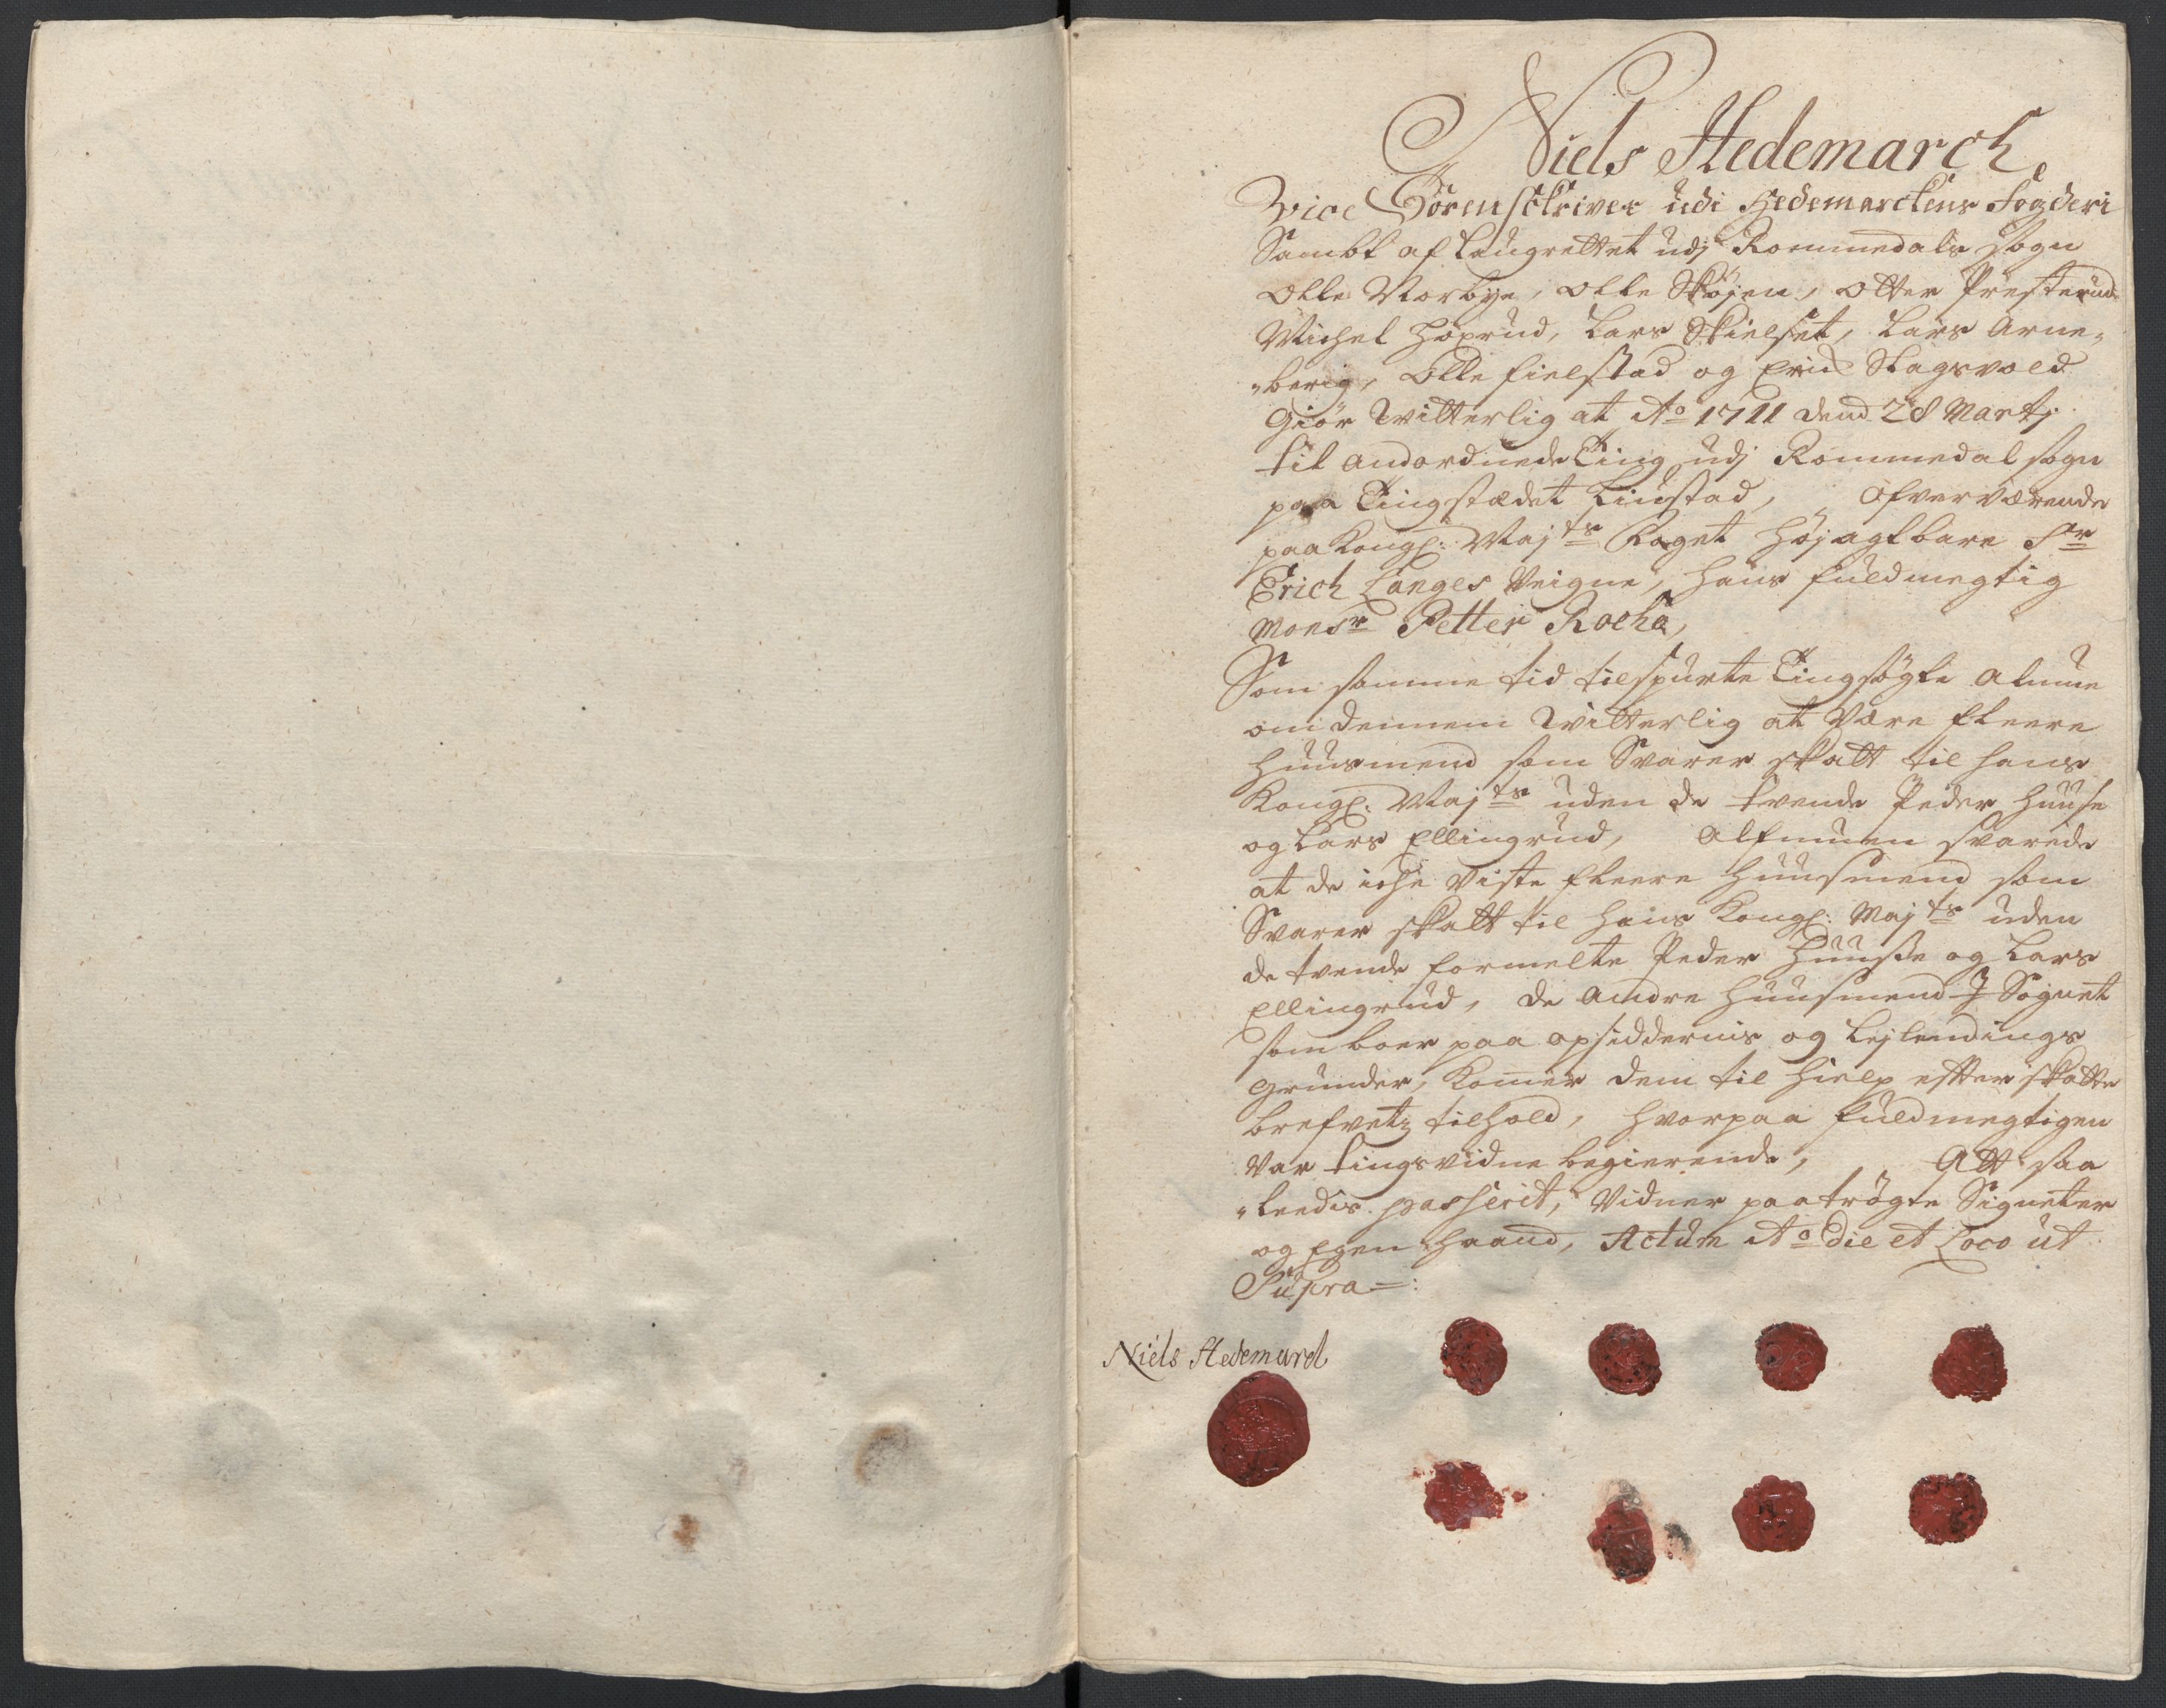 Niels Hedemarch,
Vice Sorenschriver udi Hedemarckens Fogderi
Sambt af Laugrettet udj Rommedals Sogn
Olle Norbye, Olle Skøjen, Otter Presterud
Michel Hoprud, Lars Skielset, Lars Arne,,
,,berig, Olle Fielstad og Erich Stagsvold
Giør Witterlig at Ao 1711 dend 28 Martj
til andordnede Ting udj Rommedal Sogn
paa Tingstædet Liustad, ofverværende
paa Kongl: Majts Foget Højagtbare Sr
Erich Langes Veigne, hans fuldmegtig
Monsr Petter Rocha,
Som samme tid tilspurte Tingsøgte Almue
om dennem Witterlig at være fleere
Huusmend som Svarer skatt til hans
Kongl: Majts uden de tvende Peder Huuse
og Lars Ellingrud, Alfmuen svarede
at de iche Viste fleere Huusmend som
Svarer skatt til hans Kongl: Majts uden
de tvende formelte Peder Huusse og Lars
Ellingrud, de andre Huusmend J Sognet
som boer paa opsiddernis og Lejlendings
grunder, Komer dem til hielp efter skatte
brefvetz tilhold, hvorpaa fuldmegtigen
Var tingsvidne begierende, Att saa
,,leedis passerit, Vidner paatrøgte Signeter
og Egen haand, Actum Ao Die et Loco ut
Supra=:
Niels Hedemarch